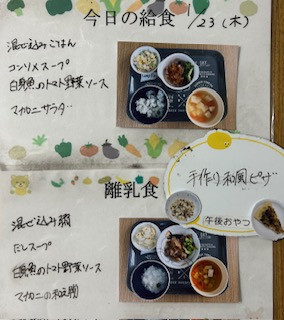 今日の給食 1/23(木)
混ぜ込みごはん
コンソメスープ
白身魚のトマト野菜ソース
マカロニサラダ
手作り和風ピザ
午後おやつ
離乳食
混ぜ込み粥
だしスープ
白身魚のトマト野菜ソース
マカロニの和え物